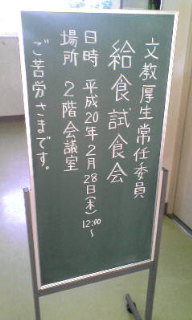 文教厚生常任委員
給食試食会
日時 平成20年2月28日(木)
12:00~
場所 2階会議室
ご苦労さまです。